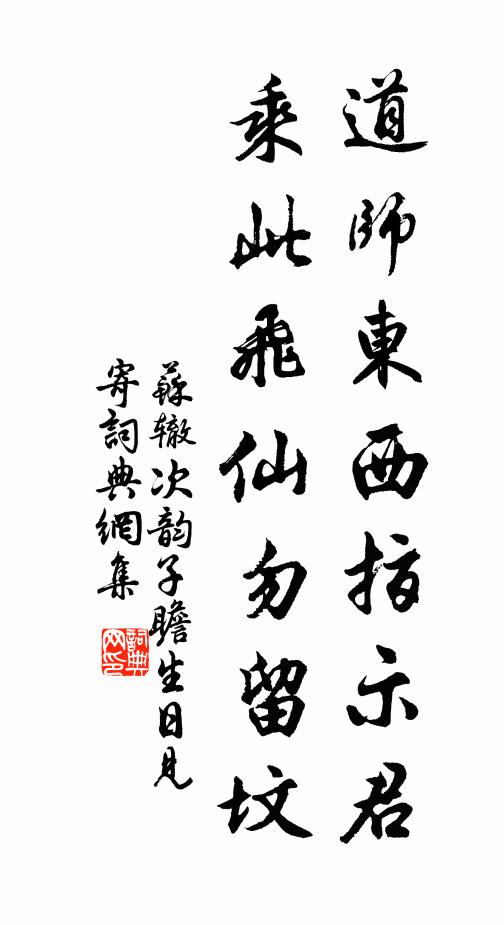 道師東西指示君
乘此飛仙勿留坟
蘇辙次韵子瞻生日見
寄詞典網集
詞典
网印